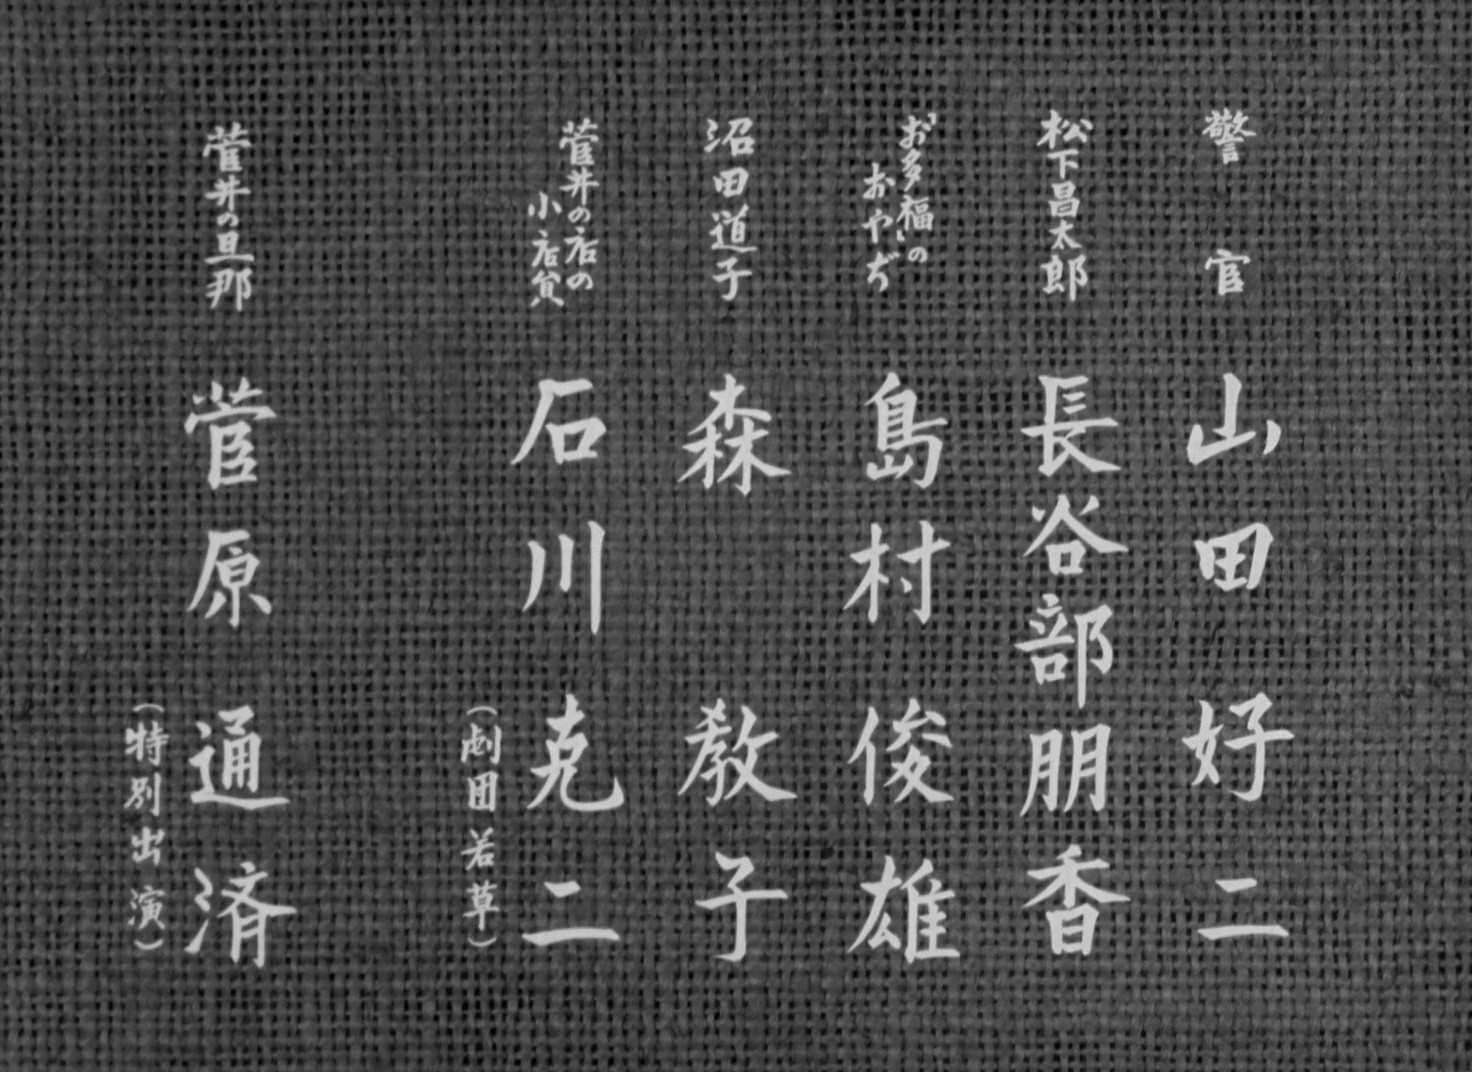 警官
山田好二
松下昌太郎
長谷部朋香
「お多福」の
おやぢ
島村俊雄
沼田道子
森教子
菅井の店の
小店員
石川克二
(劇団若草)
菅井の旦那
菅原通済
(特別出演)